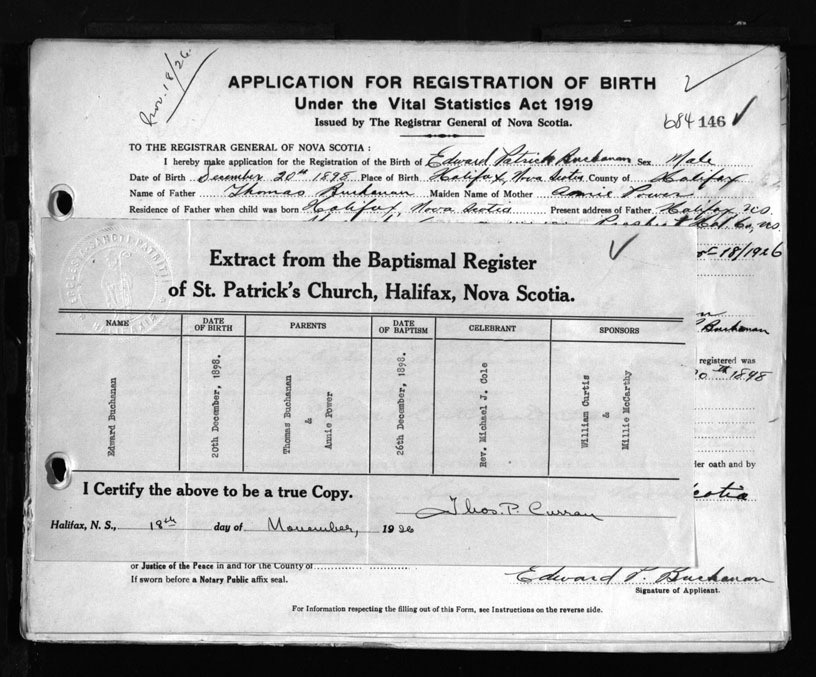 Nov. 18/26.
APPLICATION FOR REGISTRATION OF BIRTH
Under the Vital Statistics Act 1919
Issued by The Registrar General of Nova Scotia.
684 146
TO THE REGISTRAR GENERAL OF NOVA SCOTIA :
I hereby make application for the Registration of the Birth of Edward Patrick Buchanan Sex Male
Date of Birth December 20th 1898 Place of Birth Halifax, Nova Scotia County of Halifax
Name of Father Thomas Buchanan Maiden Name of Mother Annie Power
Residence of Father when child was born Halifax, Nova Scotia Present address of Father Halifax, N.S.
18/1926
Extract from the Baptismal Register
of St. Patrick's Church, Halifax, Nova Scotia.
Buchanan
NAME DATE OF BIRTH PARENTS DATE OF BAPTISM CELEBRANT SPONSORS
registered was
1898
Edward Buchanan
20th December, 1898.
Thomas Buchanan
&
Annie Power
26th December, 1898.
Rev. Michael J. Cole
William Curtis
&
Millie McCarthy
der oath and by
I Certify the above to be a true Copy.
Scotia
Thos. P. Curran
Halifax, N. S., 18th day of November, 1926
or Justice of the Peace in and for the County of
If sworn before a Notary Public affix seal.
Edward P. Buchanan
Signature of Applicant.
For Information respecting the filling out of this Form, see Instructions on the reverse side.